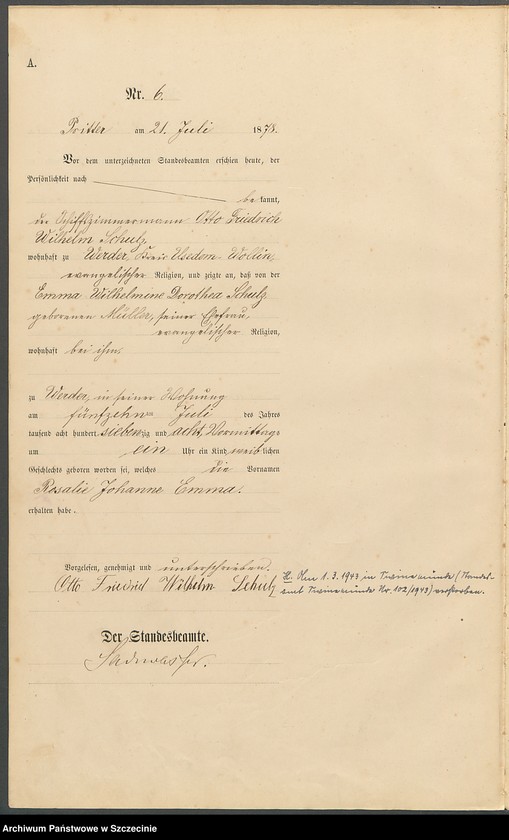 A.
Nr. 6.
Pritter am 21. Juli 1878.
Vor dem unterzeichneten Standesbeamten erschien heute, der
Persönlichkeit nach
be kannt,
der Schiffszimmermann Otto Friedrich
Wilhelm Schulz,
wohnhaft zu Werder, Kreis Usedom-Wollin,
evangelischer Religion, und zeigte an, daß von der
Emma Wilhelmine Dorothea Schulz
geborenen Müller, seiner Ehefrau,
evangelischer Religion,
wohnhaft bei ihm,
zu Werder, in seiner Wohnung
am fünfzehnten Juli des Jahres
tausend acht hundert siebenzig und acht, Vormittags
um ein Uhr ein Kind weiblichen
Geschlechts geboren worden sei, welches die Vornamen
Rosalie Johanne Emma.
erhalten habe.
Vorgelesen, genehmigt und unterschrieben.
Otto Friedrid Wilhelm Schulz
Am 1.3.1943 in Swinemünde (Standes-
amt Swinemünde Nr. 102/1943) verstorben.
Der Standesbeamte.
Archiwum Państwowe w Szczecinie